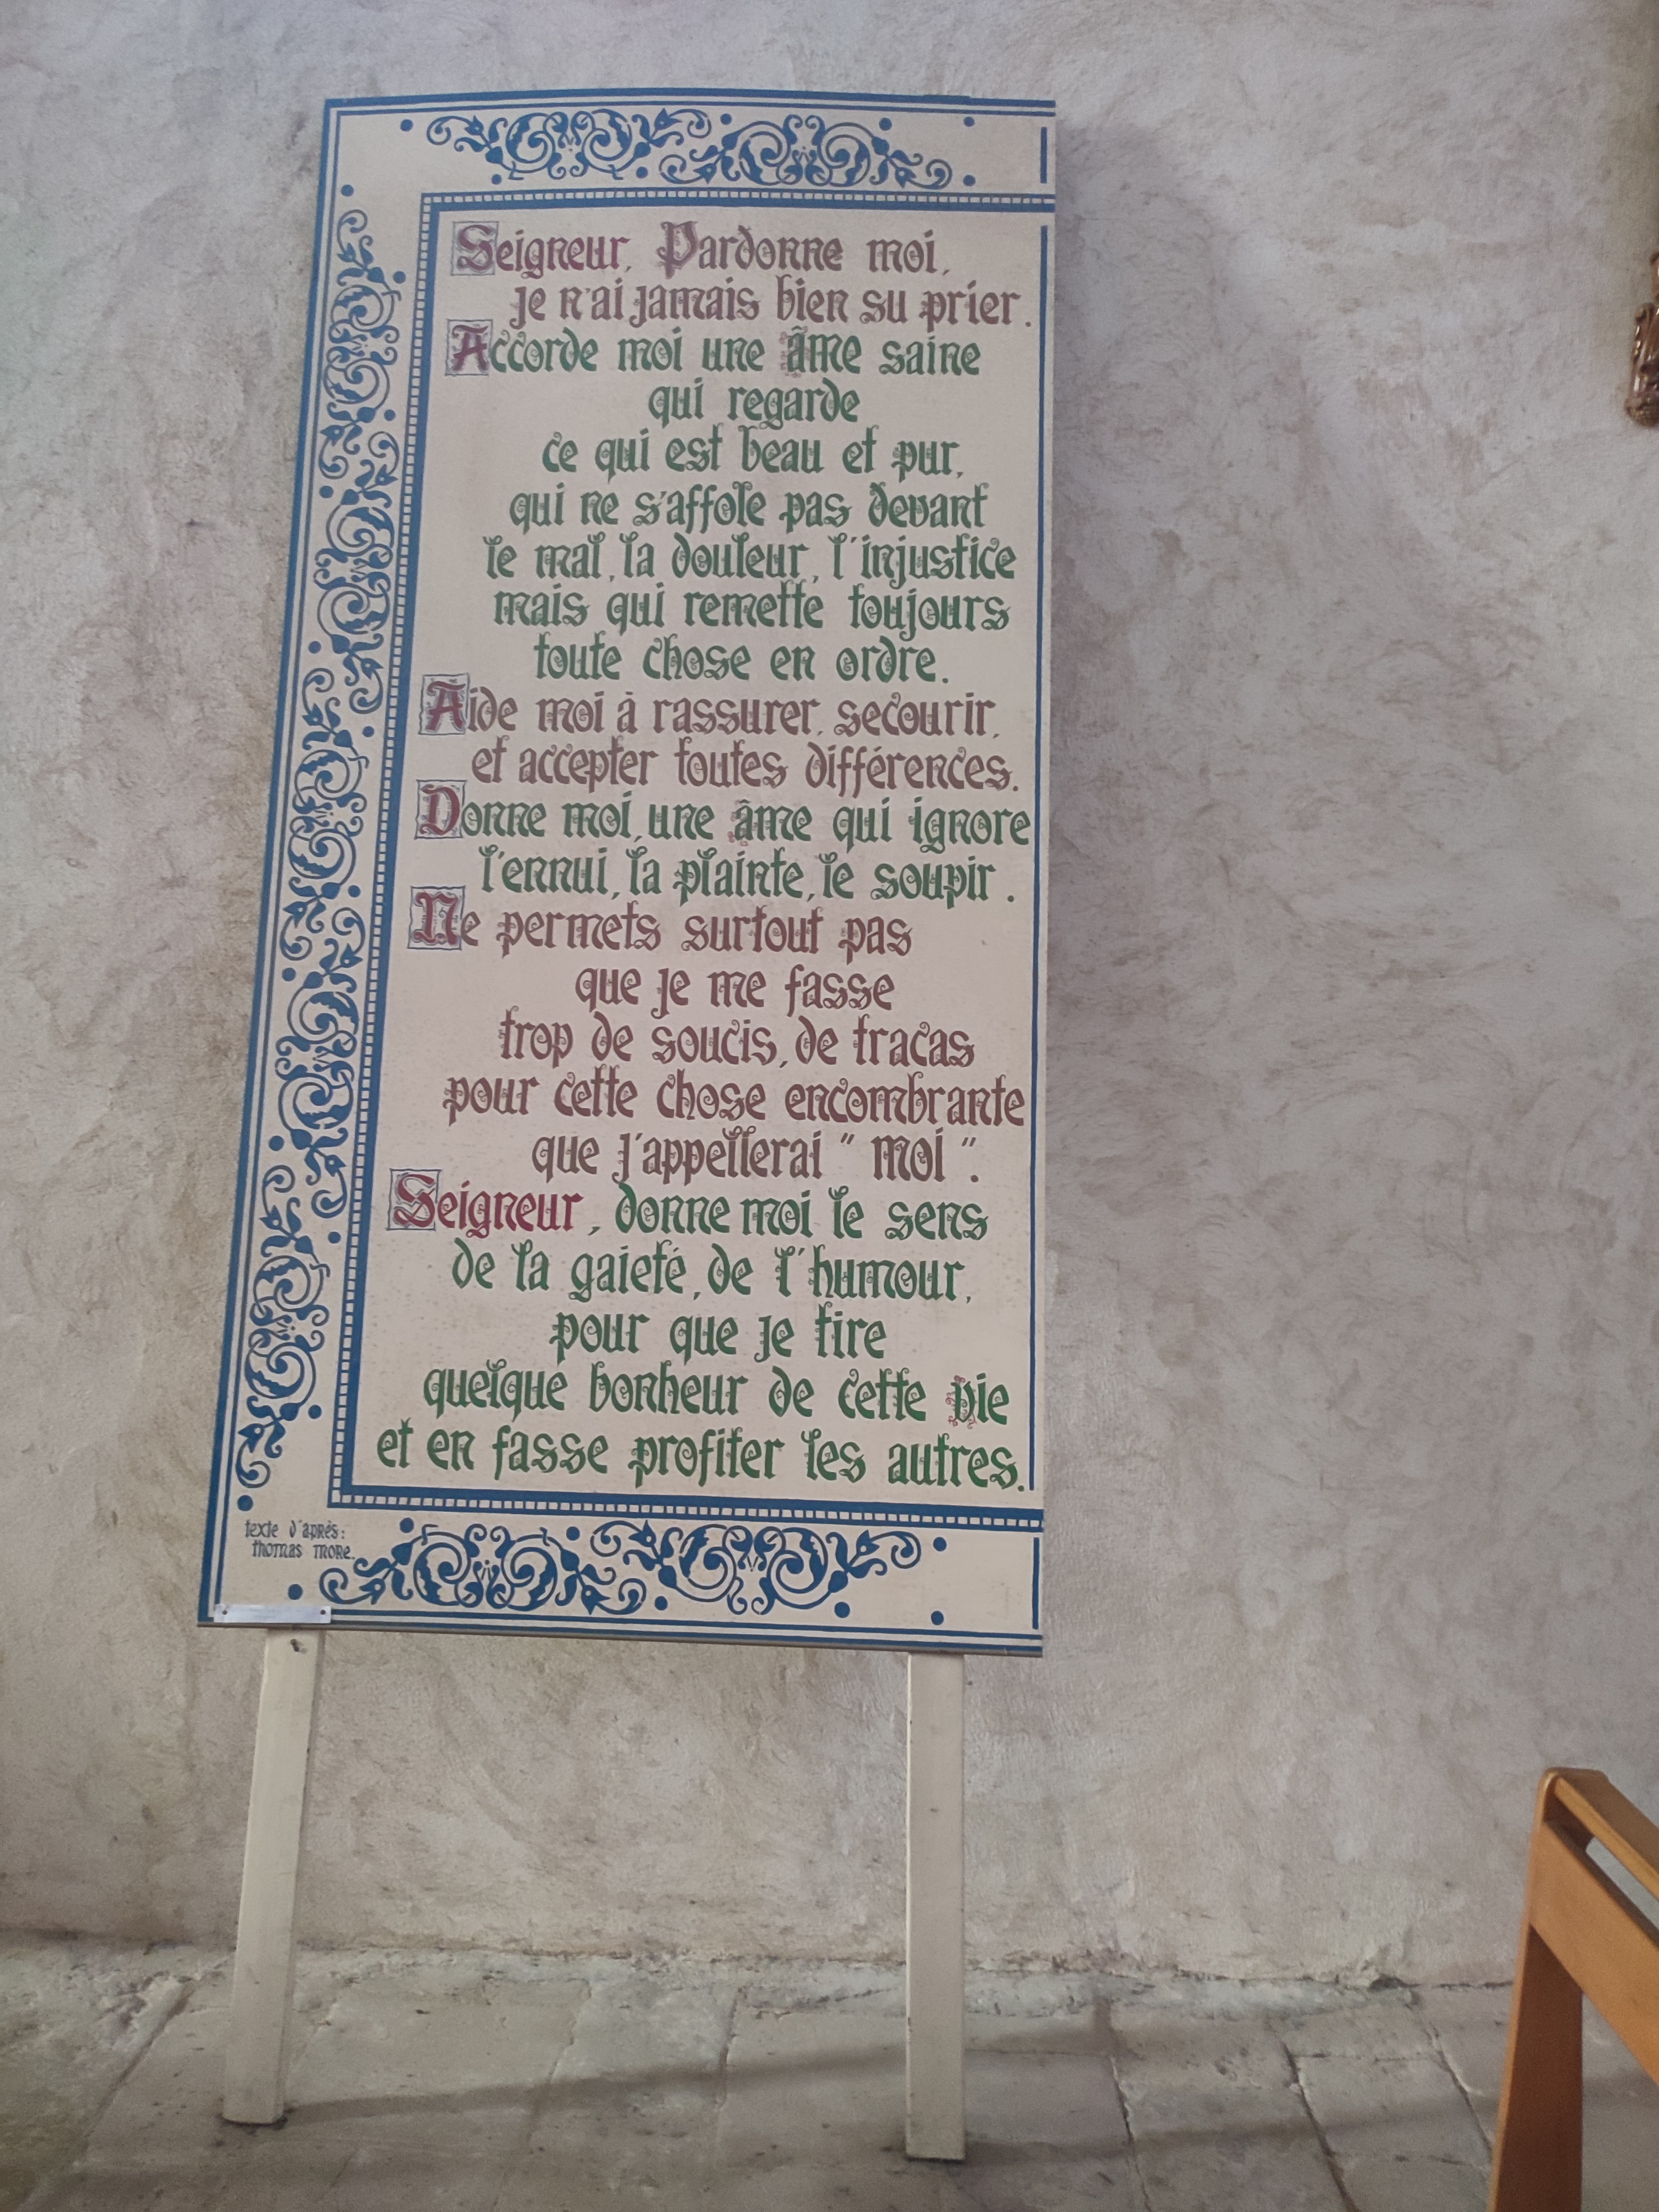 Seigneur, Pardonne moi,
je n'ai jamais bien su prier.
Accorde moi une âme saine
qui regarde
ce qui est beau et pur,
qui ne s'affole pas devant
le mal, la douleur, l'injustice
mais qui remette toujours
toute chose en ordre.
Aide moi à rassurer, secourir,
et accepter toutes différences.
Donne moi, une âme qui ignore
l'ennui, la plainte, le soupir.
Ne permets surtout pas
que je me fasse
trop de soucis, de tracas
pour cette chose encombrante
que j'appellerai "moi".
Seigneur, donne moi le sens
de la gaieté, de l'humour,
pour que je tire
quelque bonheur de cette vie
et en fasse profiter les autres.
texte d'après:
thomas more.